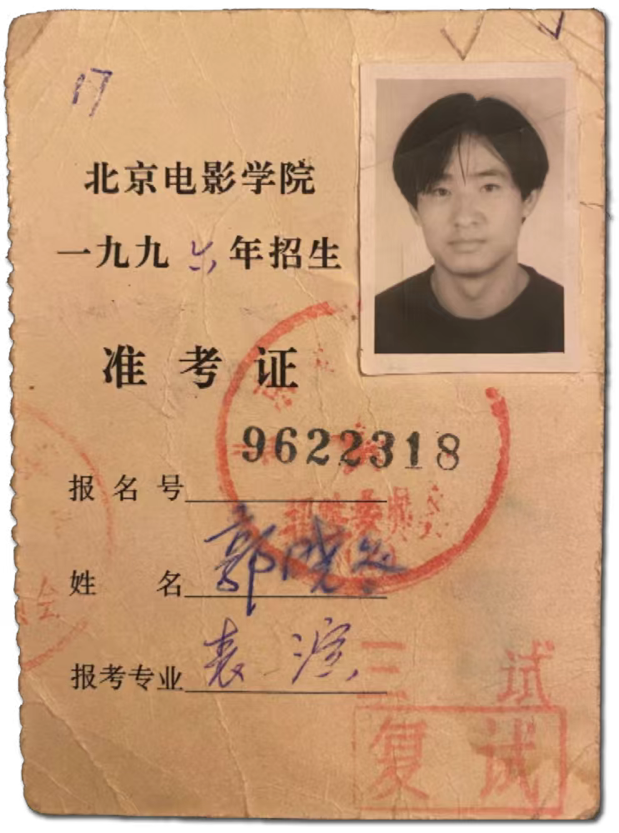 17
北京电影学院
一九九六年招生
准考证
报名号 9622318
姓名 郭晓冬
报考专业 表演
三试
复试